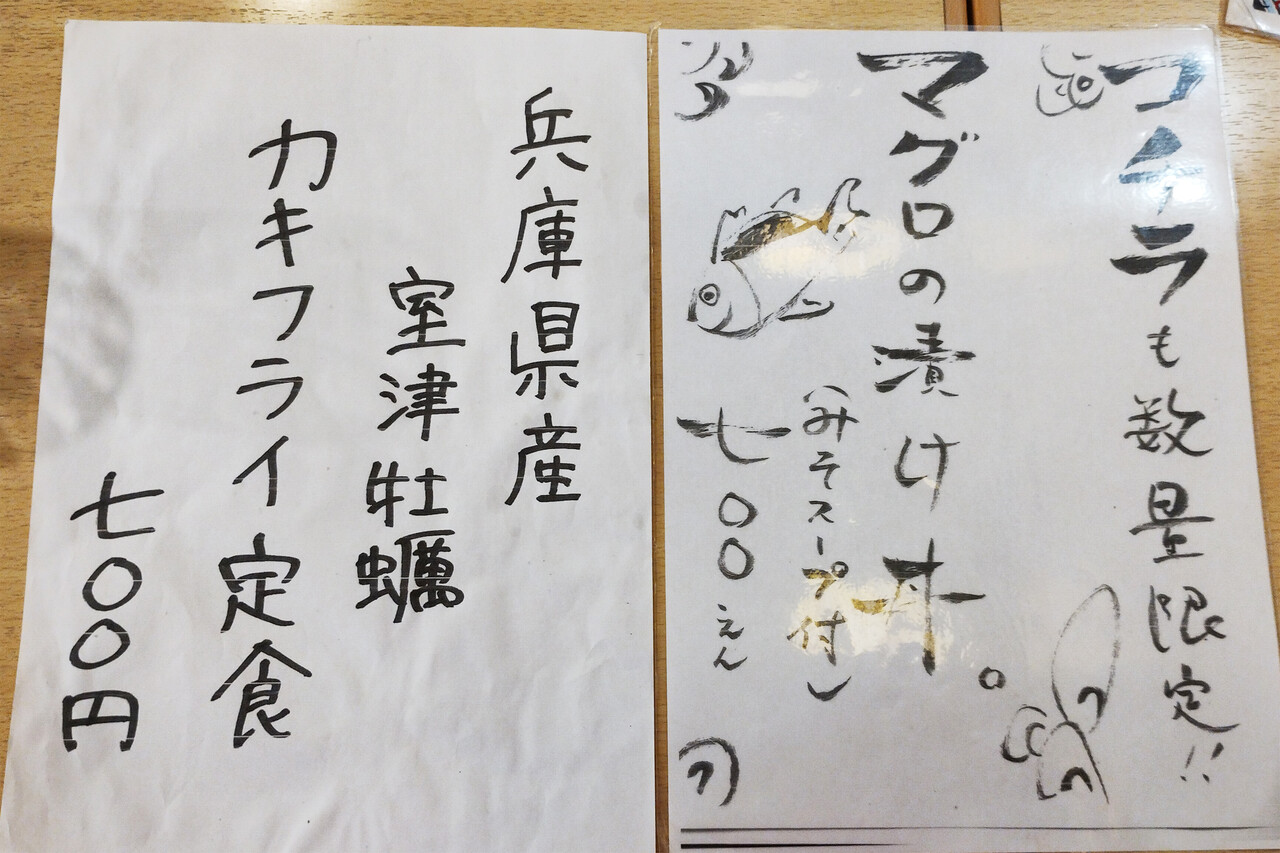 コチラも数量限定!!
マグロの漬け丼。
(みそスープ付)
七〇〇えん
兵庫県産
室津牡蠣
カキフライ定食
七〇〇円